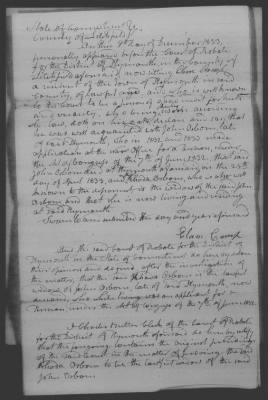 State of Connecticut Ss.
County of Litchfield
On this 9th day of December 1833,
personally appeared before the Court of Probate
for the District of Plymouth in the County of
Litchfield aforesaid now sitting Elam Camp
a resident of the town of Plymouth in said
County of lawful age, and who is well known
to the Court to be a person of good moral truth
and veracity, who being duly sworn according
to law, doth on his oath declare and say that
he was well acquainted with John Osborn, late
of said Plymouth, who in 1832 and 1833 made
application at the War Office for a Pension, under
the act of Congress of the 7th of June 1832, that said
John Osborn died at Plymouth aforesaid on the 25th
day of April 1833, and Rhoda Osborn, who is also well
known to the deponent is the widow of the said John
Osborn and that she is now living and residing
at said Plymouth
Sworn to and submitted the day and year aforesaid
Elam Camp
And the said Court of Probate for the District of
Plymouth in the State of Connecticut do hereby declare
their opinion and do find, after the investigation of
the matter, that the said Rhoda Osborn is the lawful
widow of John Osborn, late of said Plymouth, now
deceased, who while living was an applicant for a
Pension, under the act of Congress of the 7th of June 1832.
I Charles Butler Clerk of the Court of Probate
for the District of Plymouth aforesaid do hereby certify
that the foregoing contains the original proceedings
of the said Court in the matter of proving the said
Rhoda Osborn to be the lawful widow of the said
John Osborn